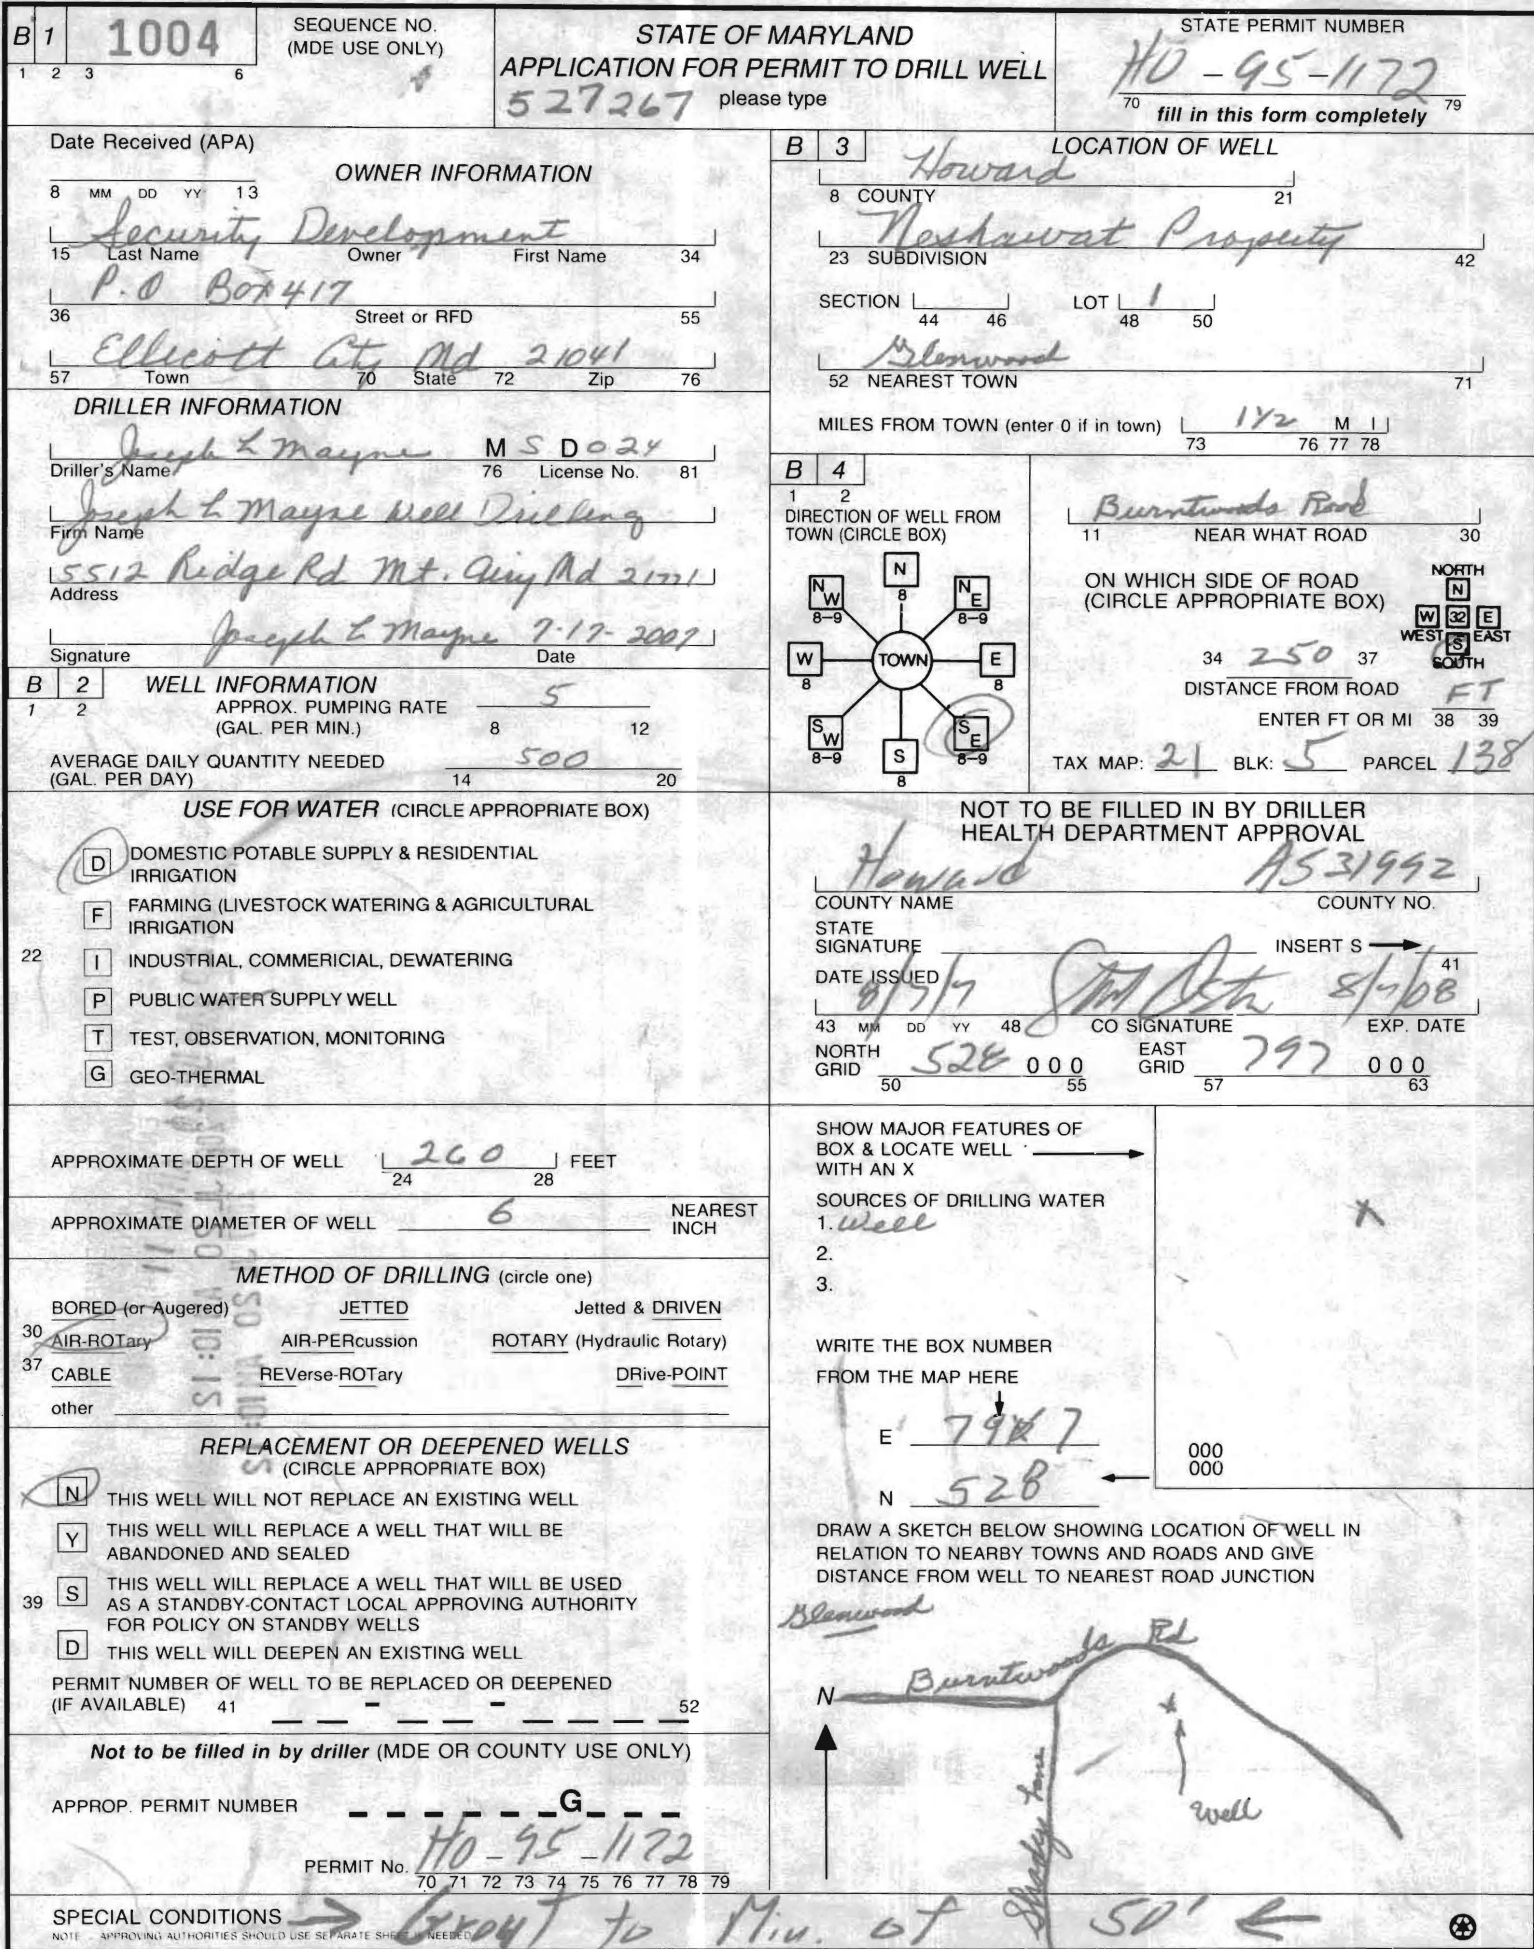 B 1 1004 SEQUENCE NO. (MDE USE ONLY)
1 2 3 6
STATE OF MARYLAND
APPLICATION FOR PERMIT TO DRILL WELL
527267 please type
STATE PERMIT NUMBER
HO-95-1172
70 79
fill in this form completely
Date Received (APA)
8 MM DD YY 13
OWNER INFORMATION
Security Development
15 Last Name Owner First Name 34
P.O Box 417
36 Street or RFD 55
Ellicott City Md 21041
57 Town 70 State 72 Zip 76
DRILLER INFORMATION
Joseph L Mayne M S D 024
Driller's Name 76 License No. 81
Joseph L Mayne Well Drilling
Firm Name
5512 Ridge Rd Mt. Airy Md 21771
Address
Joseph L Mayne 7-17-2007
Signature Date
B 2 WELL INFORMATION
1 2
APPROX. PUMPING RATE 5
(GAL. PER MIN.) 8 12
AVERAGE DAILY QUANTITY NEEDED 500
(GAL. PER DAY) 14 20
USE FOR WATER (CIRCLE APPROPRIATE BOX)
D DOMESTIC POTABLE SUPPLY & RESIDENTIAL
IRRIGATION
F FARMING (LIVESTOCK WATERING & AGRICULTURAL
IRRIGATION
22 I INDUSTRIAL, COMMERICIAL, DEWATERING
P PUBLIC WATER SUPPLY WELL
T TEST, OBSERVATION, MONITORING
G GEO-THERMAL
APPROXIMATE DEPTH OF WELL 260 FEET
24 28
APPROXIMATE DIAMETER OF WELL 6 NEAREST INCH
METHOD OF DRILLING (circle one)
BORED (or Augered) JETTED Jetted & DRIVEN
30 AIR-ROTary AIR-PERcussion ROTARY (Hydraulic Rotary)
37 CABLE REVerse-ROTary DRive-POINT
other
REPLACEMENT OR DEEPENED WELLS
(CIRCLE APPROPRIATE BOX)
N THIS WELL WILL NOT REPLACE AN EXISTING WELL
Y THIS WELL WILL REPLACE A WELL THAT WILL BE
ABANDONED AND SEALED
39 S THIS WELL WILL REPLACE A WELL THAT WILL BE USED
AS A STANDBY-CONTACT LOCAL APPROVING AUTHORITY
FOR POLICY ON STANDBY WELLS
D THIS WELL WILL DEEPEN AN EXISTING WELL
PERMIT NUMBER OF WELL TO BE REPLACED OR DEEPENED
(IF AVAILABLE) 41 - - 52
Not to be filled in by driller (MDE OR COUNTY USE ONLY)
APPROP. PERMIT NUMBER G
PERMIT No. HO-95-1172
70 71 72 73 74 75 76 77 78 79
B 3 LOCATION OF WELL
Howard
8 COUNTY 21
Neshawat Property
23 SUBDIVISION 42
SECTION LOT 1
44 46 48 50
Glenwood
52 NEAREST TOWN 71
MILES FROM TOWN (enter 0 if in town) 1 1/2 M I
73 76 77 78
B 4
1 2
DIRECTION OF WELL FROM
TOWN (CIRCLE BOX)
N 8
NW 8-9 NE 8-9
W 8 TOWN E 8
SW 8-9 S 8 SE 8-9
Burntwoods Road
11 NEAR WHAT ROAD 30
ON WHICH SIDE OF ROAD
(CIRCLE APPROPRIATE BOX)
NORTH
N
W 32 E
WEST S EAST
SOUTH
34 250 37
DISTANCE FROM ROAD
ENTER FT OR MI FT
38 39
TAX MAP: 21 BLK: 5 PARCEL 138
NOT TO BE FILLED IN BY DRILLER
HEALTH DEPARTMENT APPROVAL
Howard A531992
COUNTY NAME COUNTY NO.
STATE
SIGNATURE INSERT S
41
DATE ISSUED
8/7/7 8/7/08
43 MM DD YY 48 CO SIGNATURE EXP. DATE
NORTH GRID 528 0 0 0 EAST GRID 797 0 0 0
50 55 57 63
SHOW MAJOR FEATURES OF
BOX & LOCATE WELL
WITH AN X
X
SOURCES OF DRILLING WATER
1. Well
2.
3.
WRITE THE BOX NUMBER
FROM THE MAP HERE
E 797
N 528
000
000
DRAW A SKETCH BELOW SHOWING LOCATION OF WELL IN
RELATION TO NEARBY TOWNS AND ROADS AND GIVE
DISTANCE FROM WELL TO NEAREST ROAD JUNCTION
Glenwood
Burntwoods Rd
N
X
Well
Shady Lane
SPECIAL CONDITIONS Grout to Min. of 50'
NOTE APPROVING AUTHORITIES SHOULD USE SEPARATE SHEET IF NEEDED